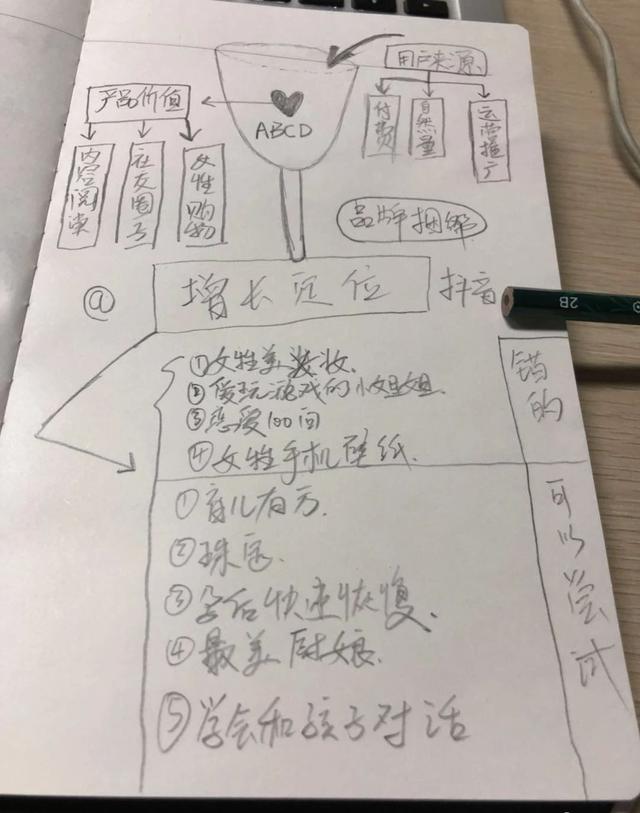 用户来源
产品价值
ABCD
付费
自然量
运营推广
内容阅读
社交圈子
女性购物
品牌捆绑
@
增长定位
抖音
2B
①女性美妆
②傻玩游戏的小姐姐
③恋爱100问
④女性手机壁纸.
错的
①育儿有方.
②珠宝.
③孕后快速恢复.
④最美厨娘.
⑤学会和孩子对话
可以尝试